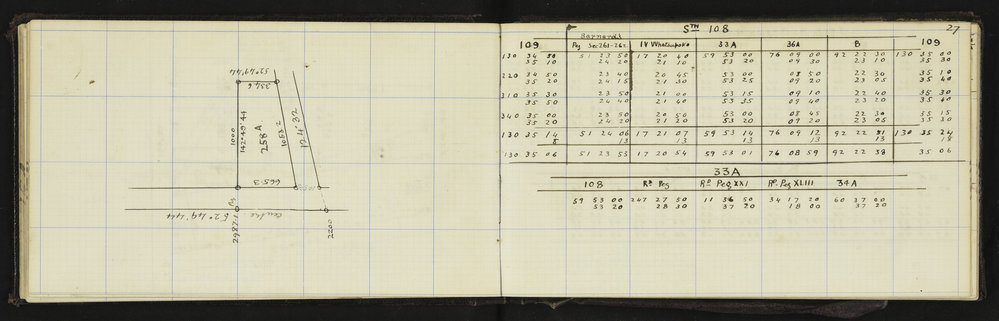 52°49'44
354.6
1000
142°49'44
258A
1053.2
124°32
665.3
2987.1 Peg
52°49'44
centre
2200
STH 108 27
109 Barnards IV Whatupoko 33A 36A B 109
Peg Sec 261-262
130 34 50 51 23 50 17 20 40 59 53 00 76 09 00 92 22 30 130 35 00
35 10 24 20 21 10 53 20 09 30 23 10 35 30
220 34 50 23 40 20 45 53 00 08 50 22 30 35 10
35 20 24 15 21 30 53 25 09 20 23 05 35 40
310 35 30 23 50 21 00 53 15 09 10 22 40 35 30
35 50 24 40 21 40 53 35 09 40 23 20 35 40
340 35 00 23 50 20 50 53 00 08 45 22 30 35 15
35 20 24 20 21 20 53 20 09 20 23 05 35 30
130 35 14 51 24 06 17 21 07 59 53 14 76 09 12 92 22 51 130 35 24
8 13 13 13 13 13 18
130 35 06 51 23 53 17 20 54 59 53 01 76 08 59 92 22 38 35 06
33A
108 Rd Peg Rd Peg XXI Rd Peg XLIII 34A
59 53 00 247 27 50 11 36 50 34 17 20 60 37 00
53 20 28 30 37 20 18 00 37 20